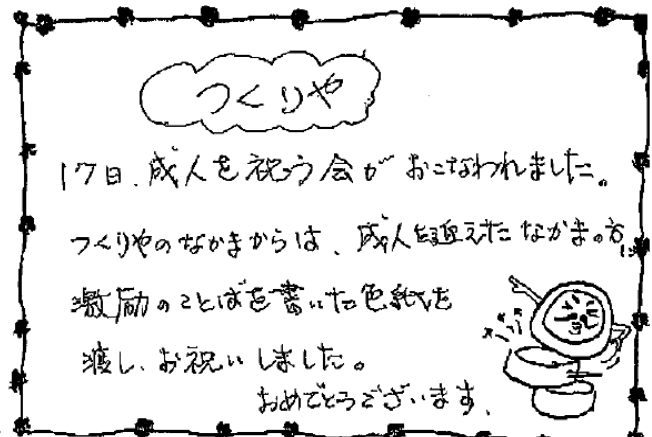 つくりや
17日、成人を祝う会がおこなわれました。
つくりやのなかまからは、成人を迎えたなかまの方に
激励のことばを書いた色紙を
渡し、お祝いしました。
おめでとうございます。